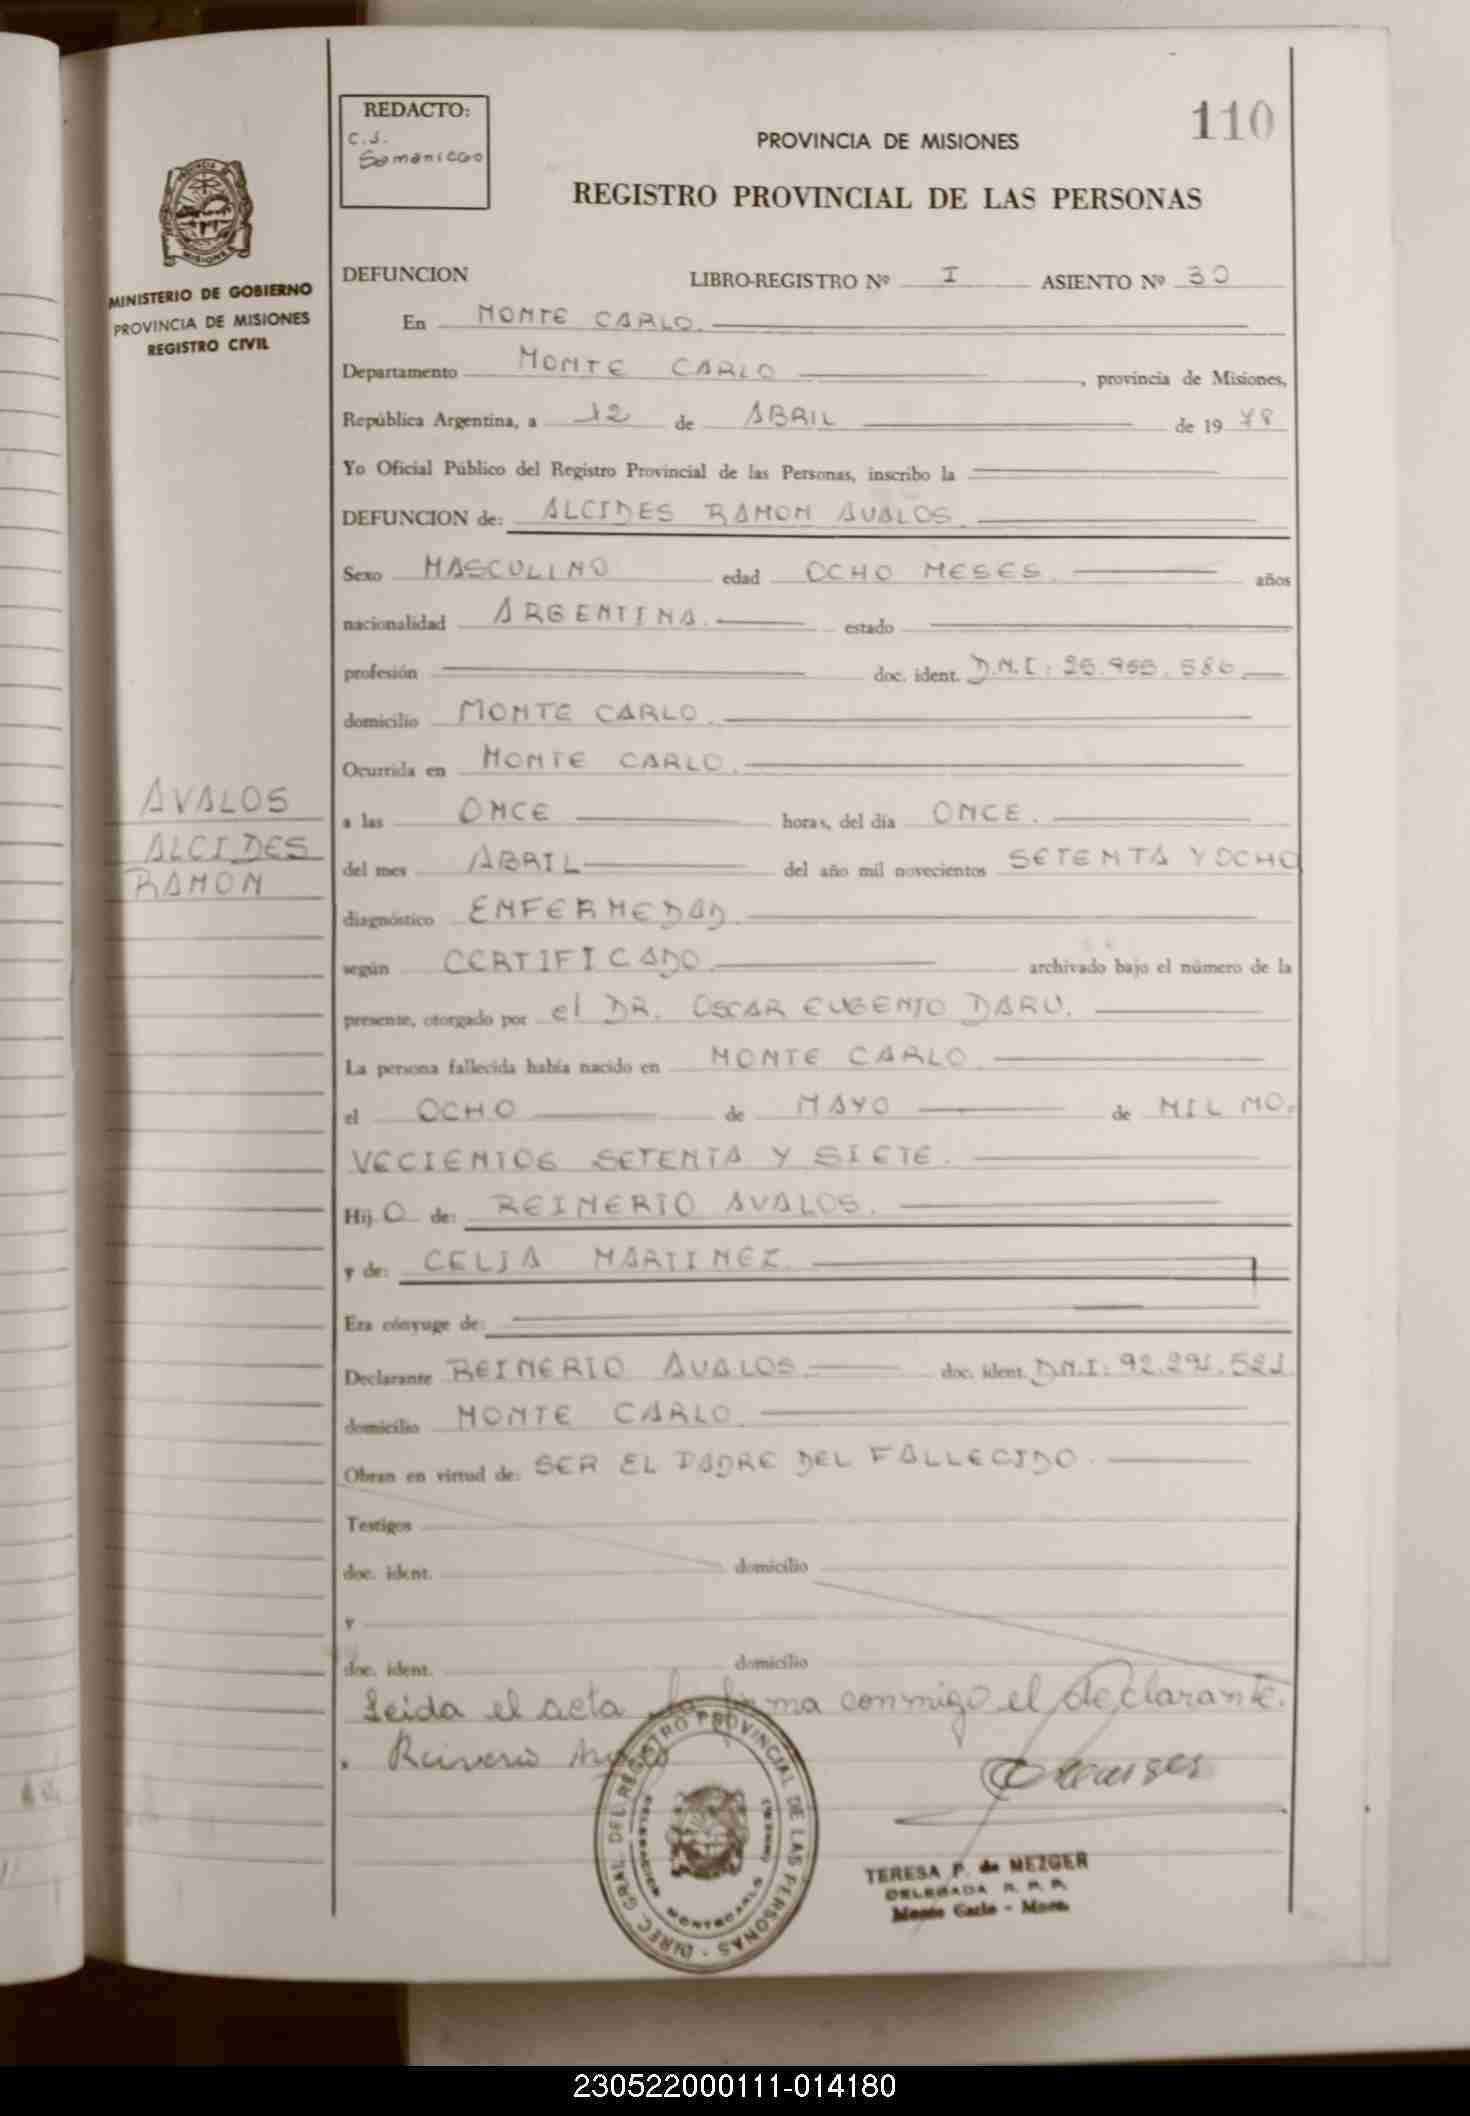 110
REDACTO:
C.J.
PROVINCIA DE MISIONES
REGISTRO PROVINCIAL DE LAS PERSONAS
PROVINCIA
MISIONES
MINISTERIO DE GOBIERNO
PROVINCIA DE MISIONES
REGISTRO CIVIL
DEFUNCION LIBRO-REGISTRO Nº I ASIENTO Nº 30
En MONTE CARLO.
Departamento MONTE CARLO, provincia de Misiones,
República Argentina, a 12 de ABRIL de 19 78
Yo Oficial Público del Registro Provincial de las Personas, inscribo la
DEFUNCION de: ALCIDES RAMON AVALOS.
Sexo MASCULINO edad OCHO MESES. años
nacionalidad ARGENTINA. estado
profesión doc. ident. D.N.I:
domicilio MONTE CARLO.
Ocurrida en MONTE CARLO.
AVALOS
ALCIDES
RAMON
a las ONCE horas, del día ONCE.
del mes ABRIL del año mil novecientos SETENTA Y OCHO
diagnóstico ENFERMEDAD.
según CERTIFICADO archivado bajo el número de la
presente, otorgado por el DR. OSCAR EUGENIO DARU.
La persona fallecida había nacido en MONTE CARLO
el OCHO de MAYO de MIL NO-
VECIENTOS SETENTA Y SIETE.
Hij O de: REINERIO AVALOS.
y de: CELIA MARTINEZ.
Era cónyuge de:
Declarante REINERIO AVALOS. doc. ident. D.N.I: 92.291.521.
domicilio MONTE CARLO.
Obran en virtud de: SER EL PADRE DEL FALLECIDO.
Testigos
doc. ident. domicilio
y
doc. ident. domicilio
Leida el acta la firma conmigo el declarante.
DIREC. GRAL. DEL REGISTRO PROVINCIAL DE LAS PERSONAS
DELEGACION MONTECARLO
TERESA P. de MEZGER
DELEGADA R. P. P.
Monte Carlo - Mnes.
230522000111-014180